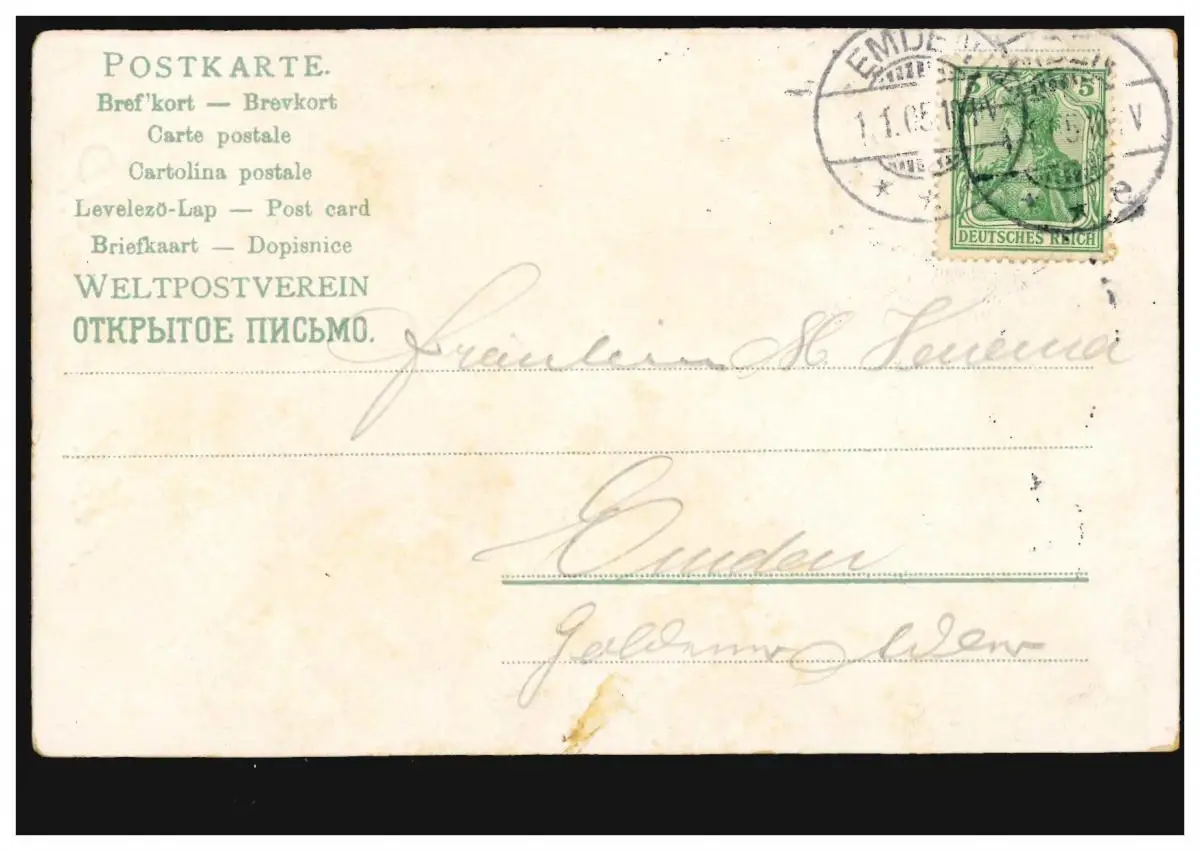 POSTKARTE.
Bref'kort — Brevkort
Carte postale
Cartolina postale
Levelező-Lap — Post card
Briefkaart — Dopisnice
WELTPOSTVEREIN
ОТКРЫТОЕ ПИСЬМО.
EMDEN
1.1.05.10-11V
5 5
DEUTSCHES REICH
Fräulein M Venema
Emden
Goldener Adler